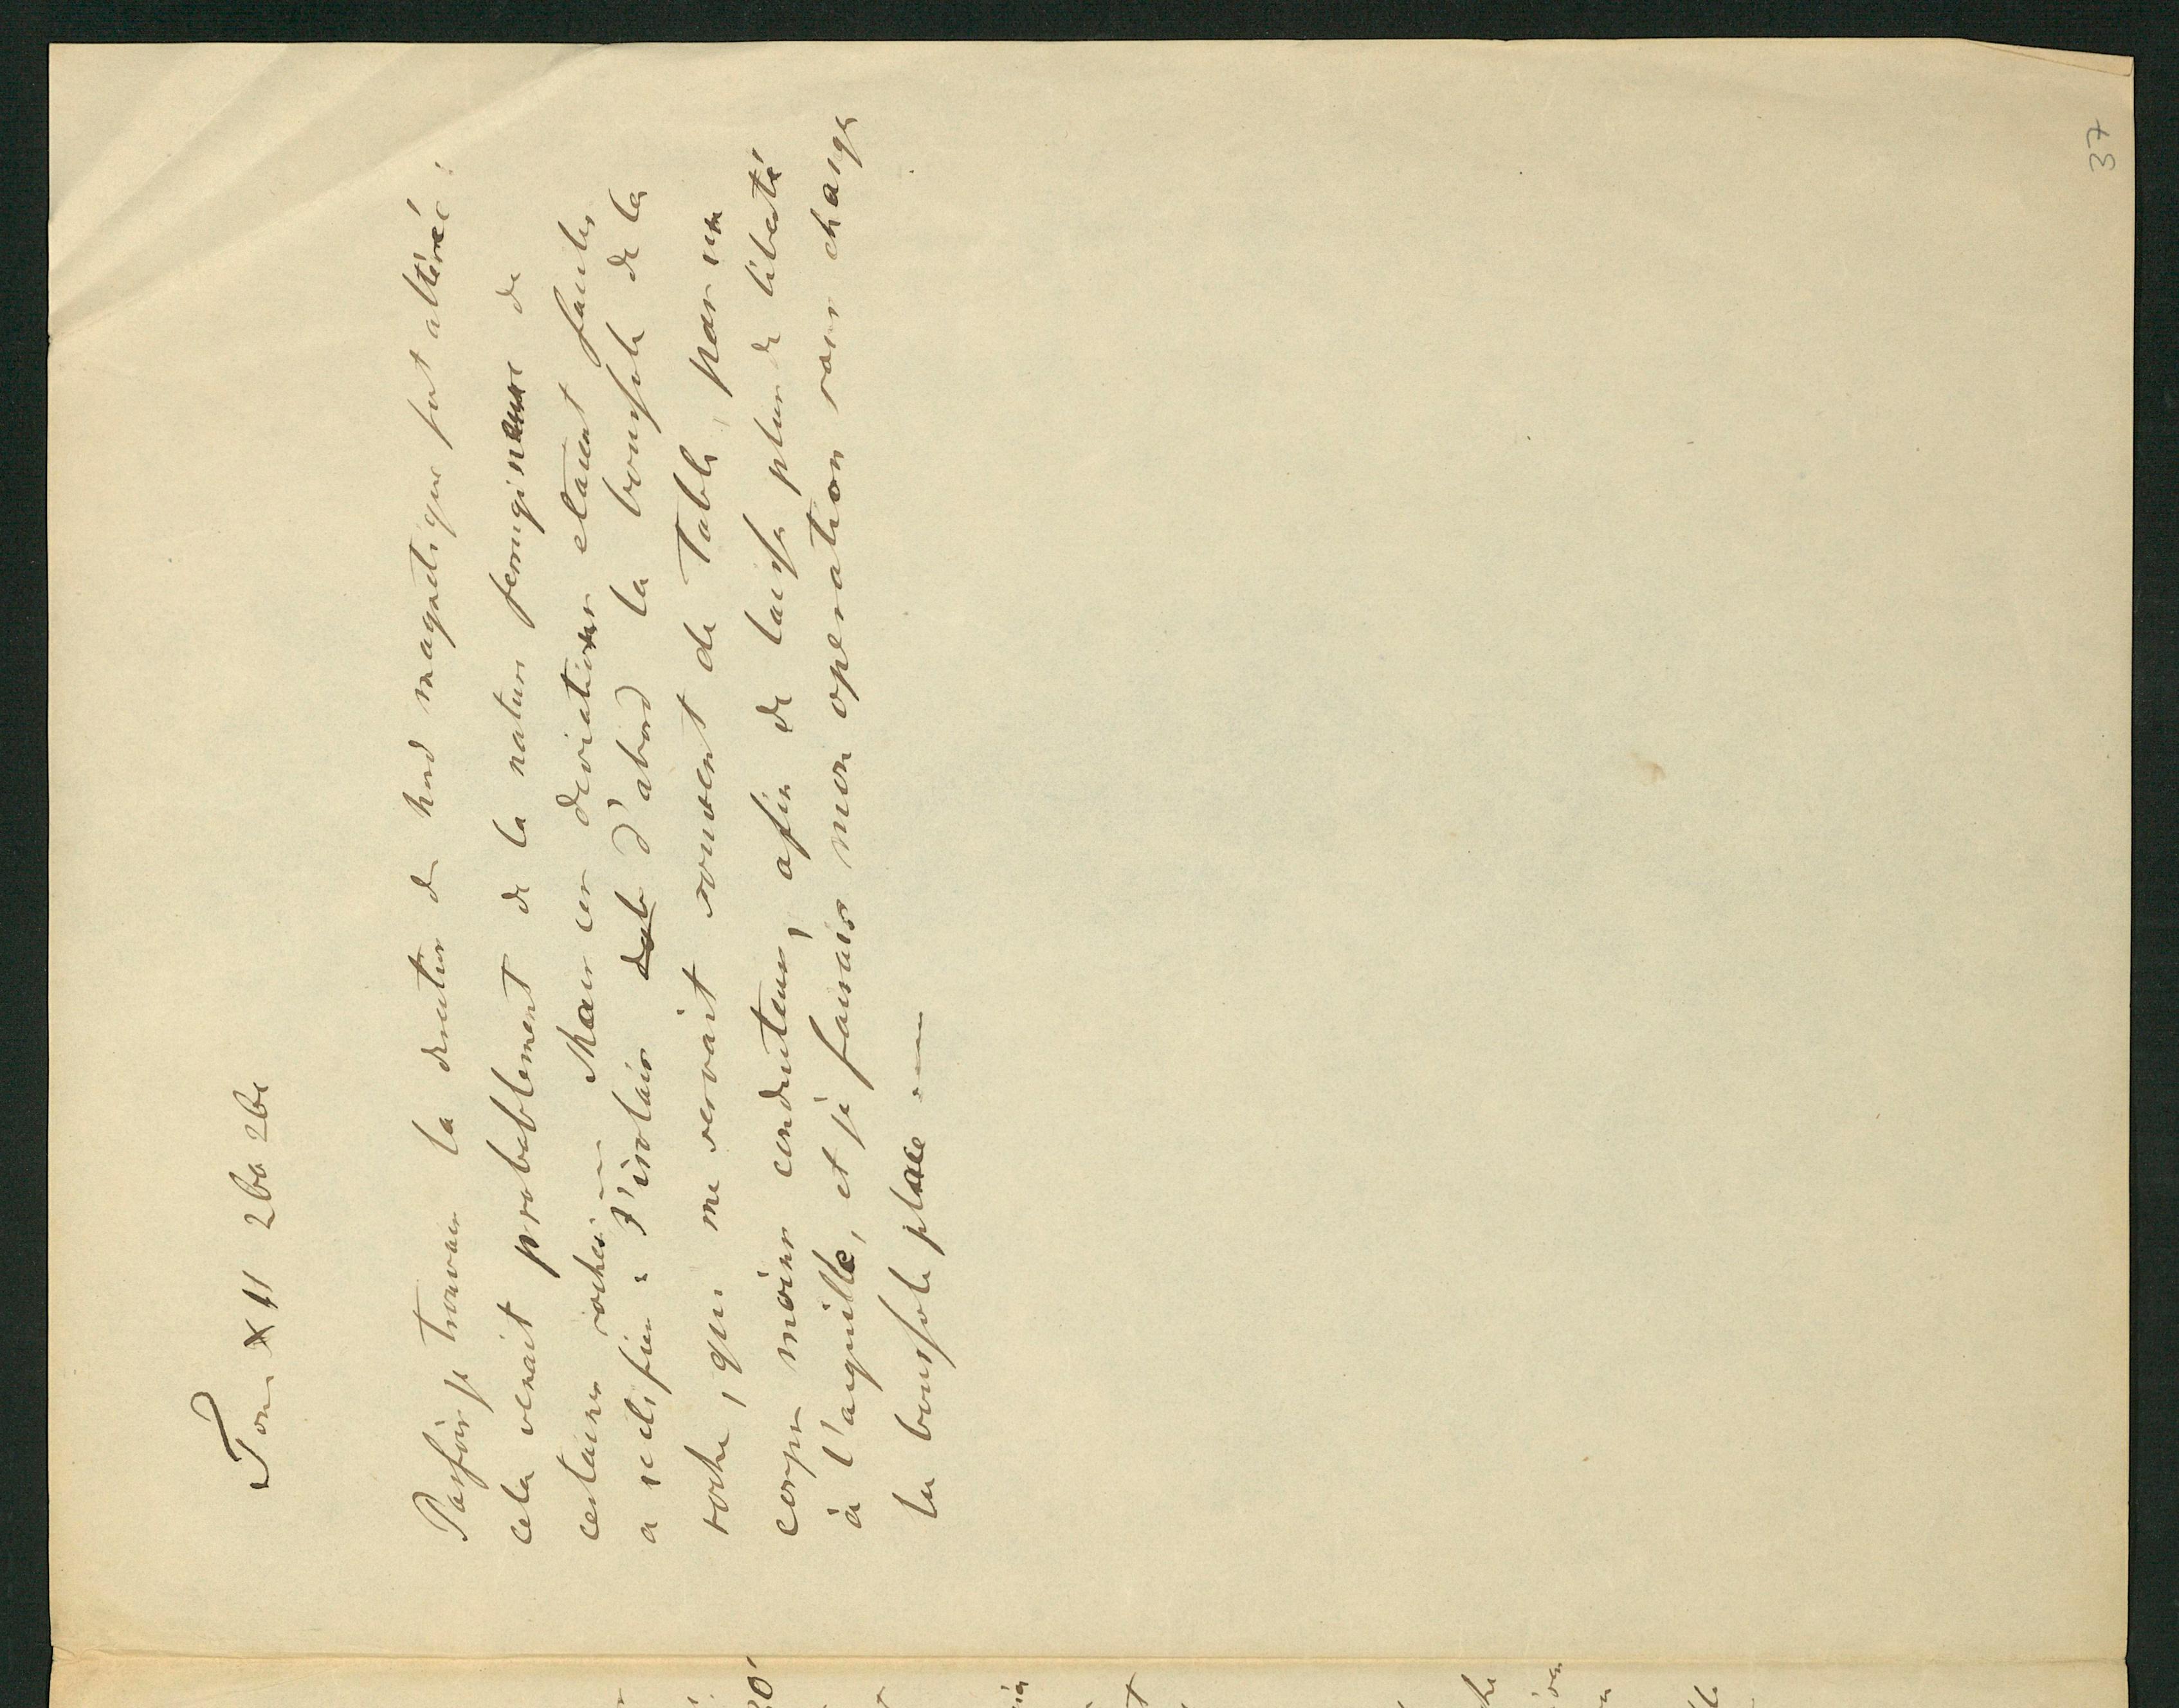 37
Tom XII 260 261
Parfois je trouvais la direction du nord magnétique fort altérée :
cela venait probablement de la nature ferrugineuse de
certaines roches — Mais ces deviations etaient faciles
a rectifier : J'isolais d'abord la boussole de la
roche, qui me servait souvent de table, par un
corps moins conducteur, afin de laisser plus de liberté
à l'aiguille, et je faisais mon operation sans changer
la boussole place —